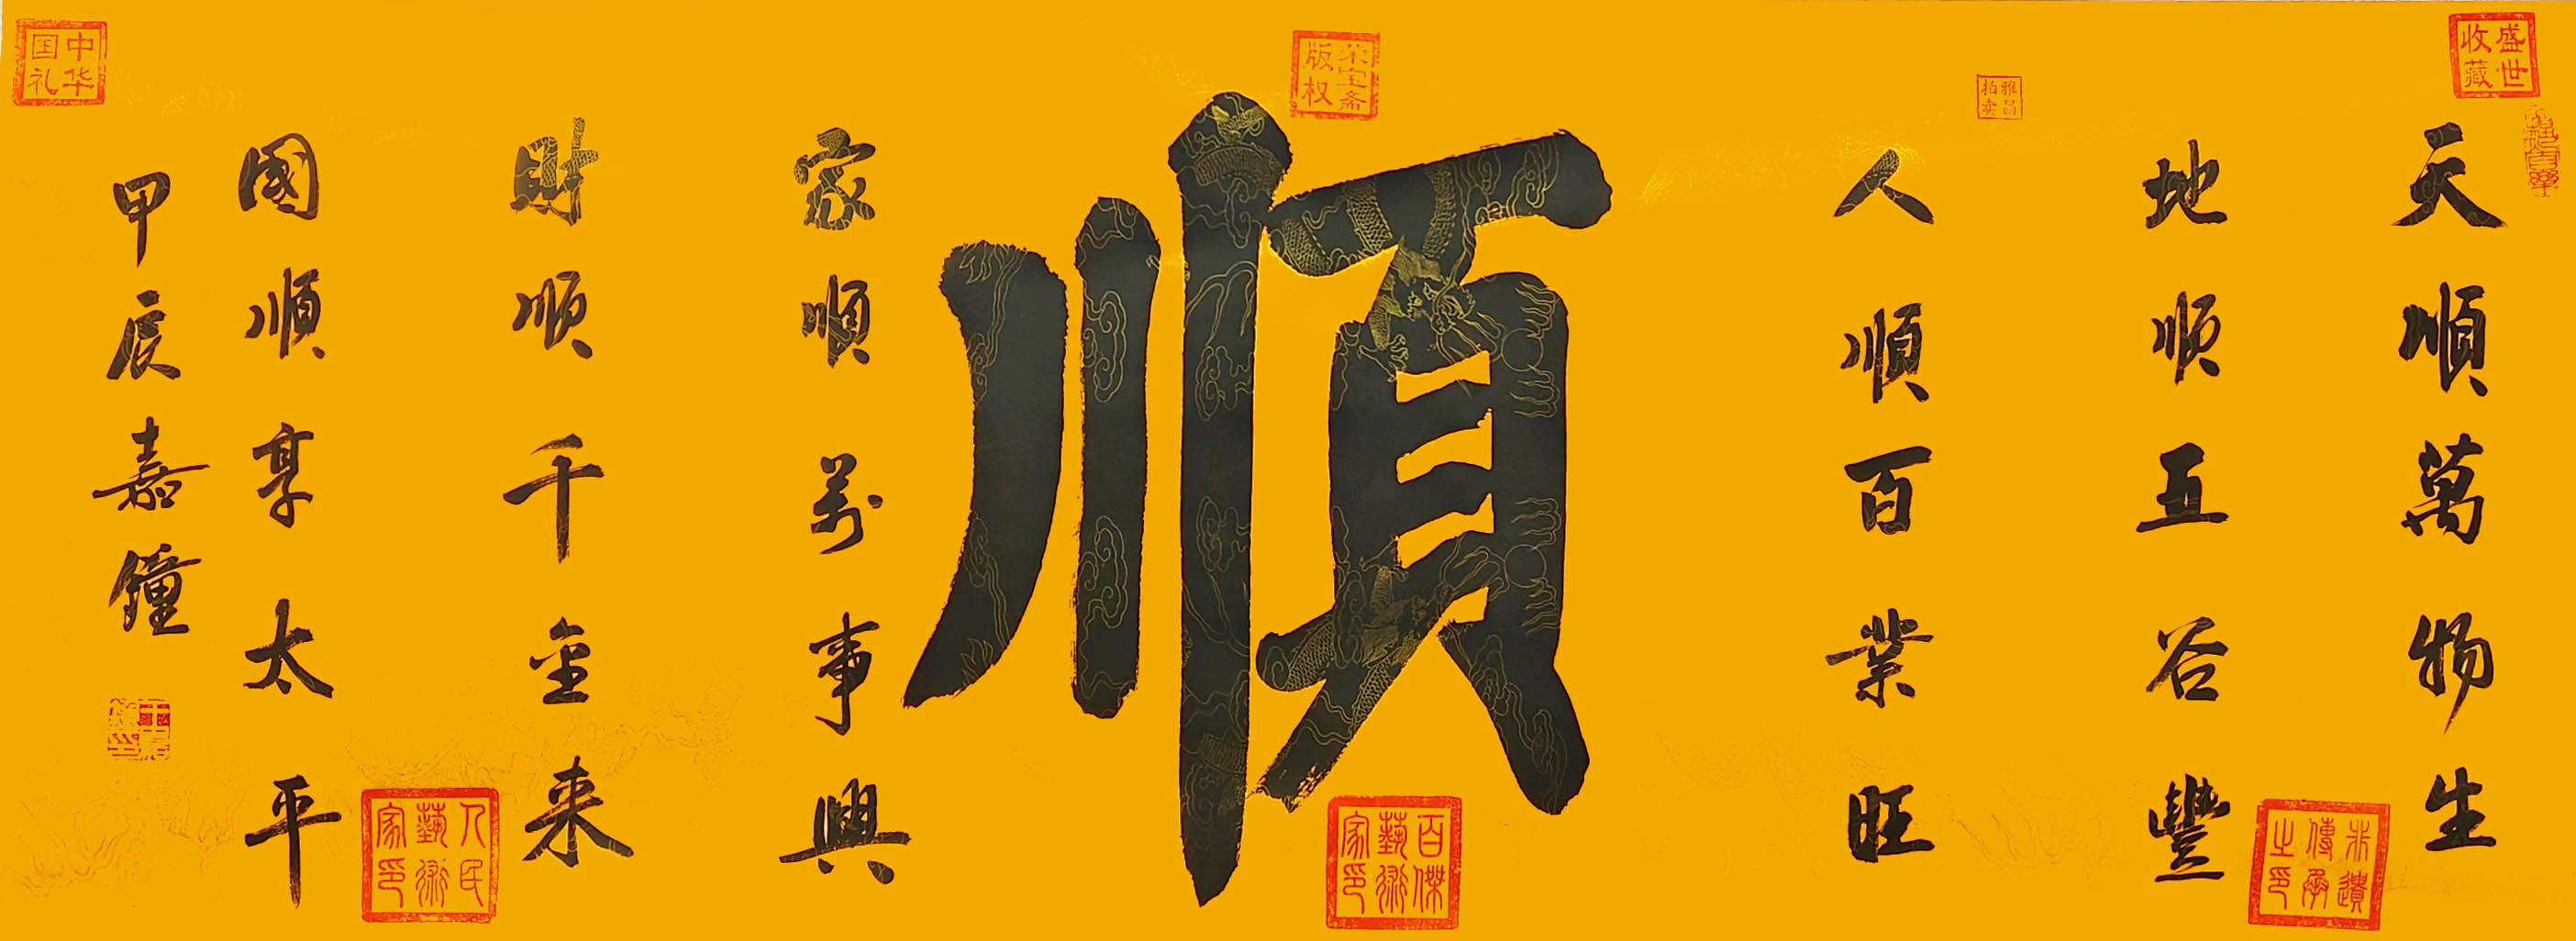 盛世收藏
天順萬物生
非遺傳承之印
地順五谷豐
雅昌拍卖
人順百業旺
荣宝斋版权
順
百傑藝術家印
家順萬事興
財順千金来
人民藝術家印
國順享太平
甲辰嘉鐘
中华国礼